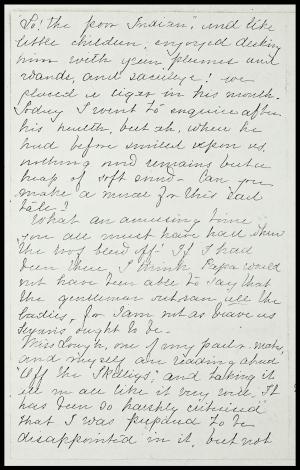 So! the poor Indian", and like
little children, enjoyed decking
him with green plumes and
wands, and sacrilege! we
placed a cigar in his mouth.
Today I went to enquire after
his health, but ah, where he
had before smiled upon us,
nothing now remains but a
heap of soft sand – Can you
make a moral for this sad
tale?
What an amusing time
you all must have had when
the roof blew off! If I had
been there, I think Papa would
not have been able to say that
the gentleman outran all the
ladies, for I am not as brave as
ought to be.
Miss Lough, one of my pall-mates,
and myself are reading aloud
"Off the Skelligs", and taking it
all in all like it very well. It
has been so harshly criticised
that I was prepared to be
disappointed in it, but not